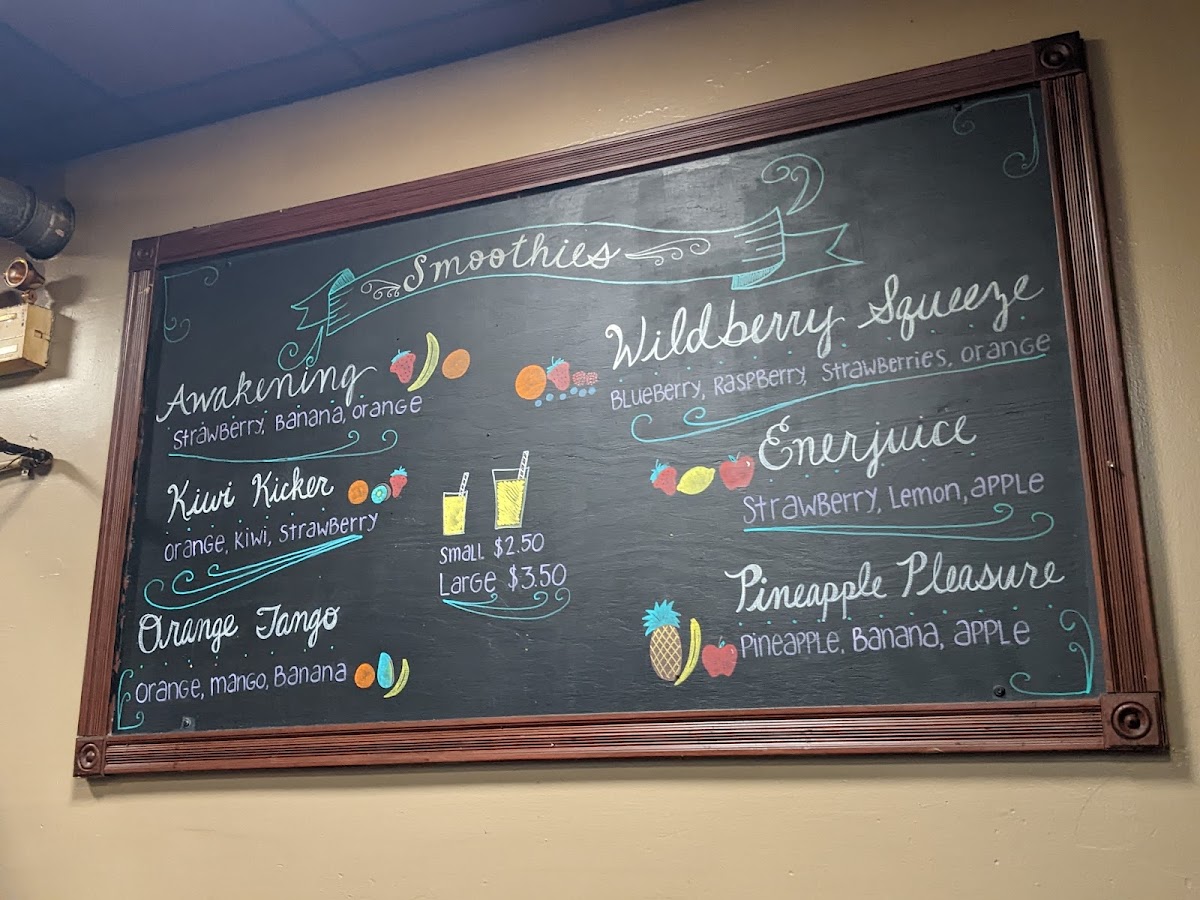 Smoothies
Awakening
Strawberry, Banana, orange
Kiwi Kicker
orange, kiwi, strawberry
Orange Tango
orange, mango, Banana
Small $2.50
Large $3.50
Wildberry Squeeze
Blueberry, Raspberry, Strawberries, orange
Enerjuice
Strawberry, Lemon, apple
Pineapple Pleasure
Pineapple, Banana, apple